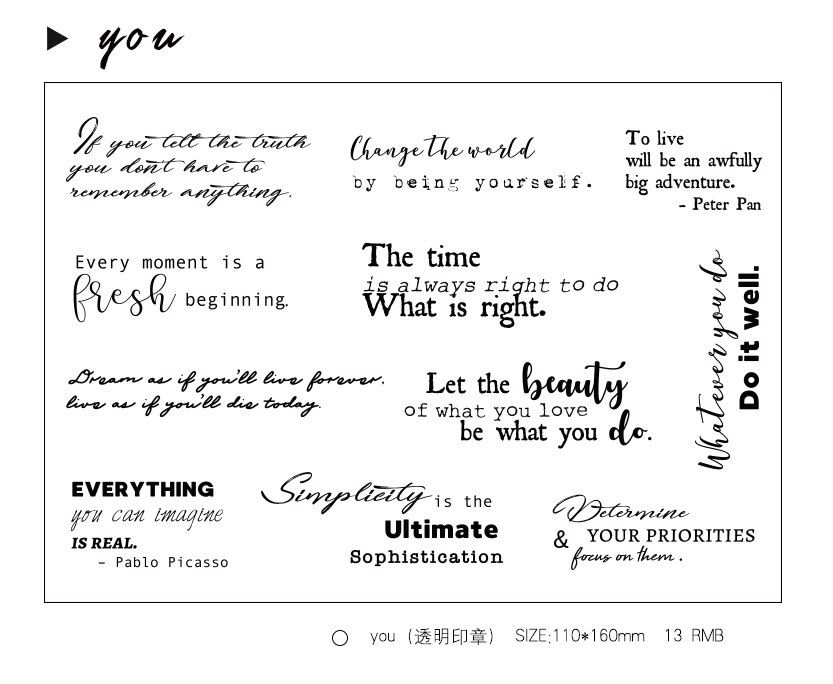 you
If you tell the truth
you don't have to
remember anything.
Change the world
by being yourself.
To live
will be an awfully
big adventure.
- Peter Pan
Every moment is a
fresh beginning.
The time
is always right to do
What is right.
Whatever you do
Do it well.
Dream as if you'll live forever,
live as if you'll die today.
Let the beauty
of what you love
be what you do.
EVERYTHING
you can imagine
IS REAL.
- Pablo Picasso
Simplicity is the
Ultimate
Sophistication
Determine
& YOUR PRIORITIES
focus on them.
you (透明印章) SIZE:110*160mm 13 RMB